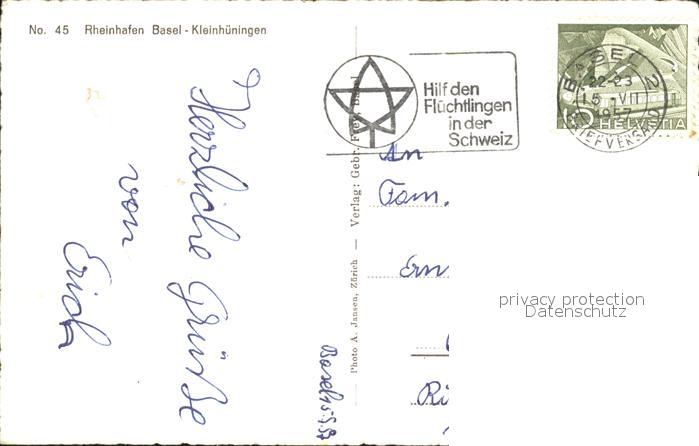 No. 45 Rheinhafen Basel - Kleinhüningen
Herzliche Grüße
von
Erich
Verlag: Gebr. Frey, Basel
Photo A. Jansen, Zürich
Hilf den
Flüchtlingen
in der
Schweiz
BASEL 2
22-23
15. VII
1957
BRIEFVERSAND
HELVETIA
An
Fam.
Ern
Ri
privacy protection
Datenschutz